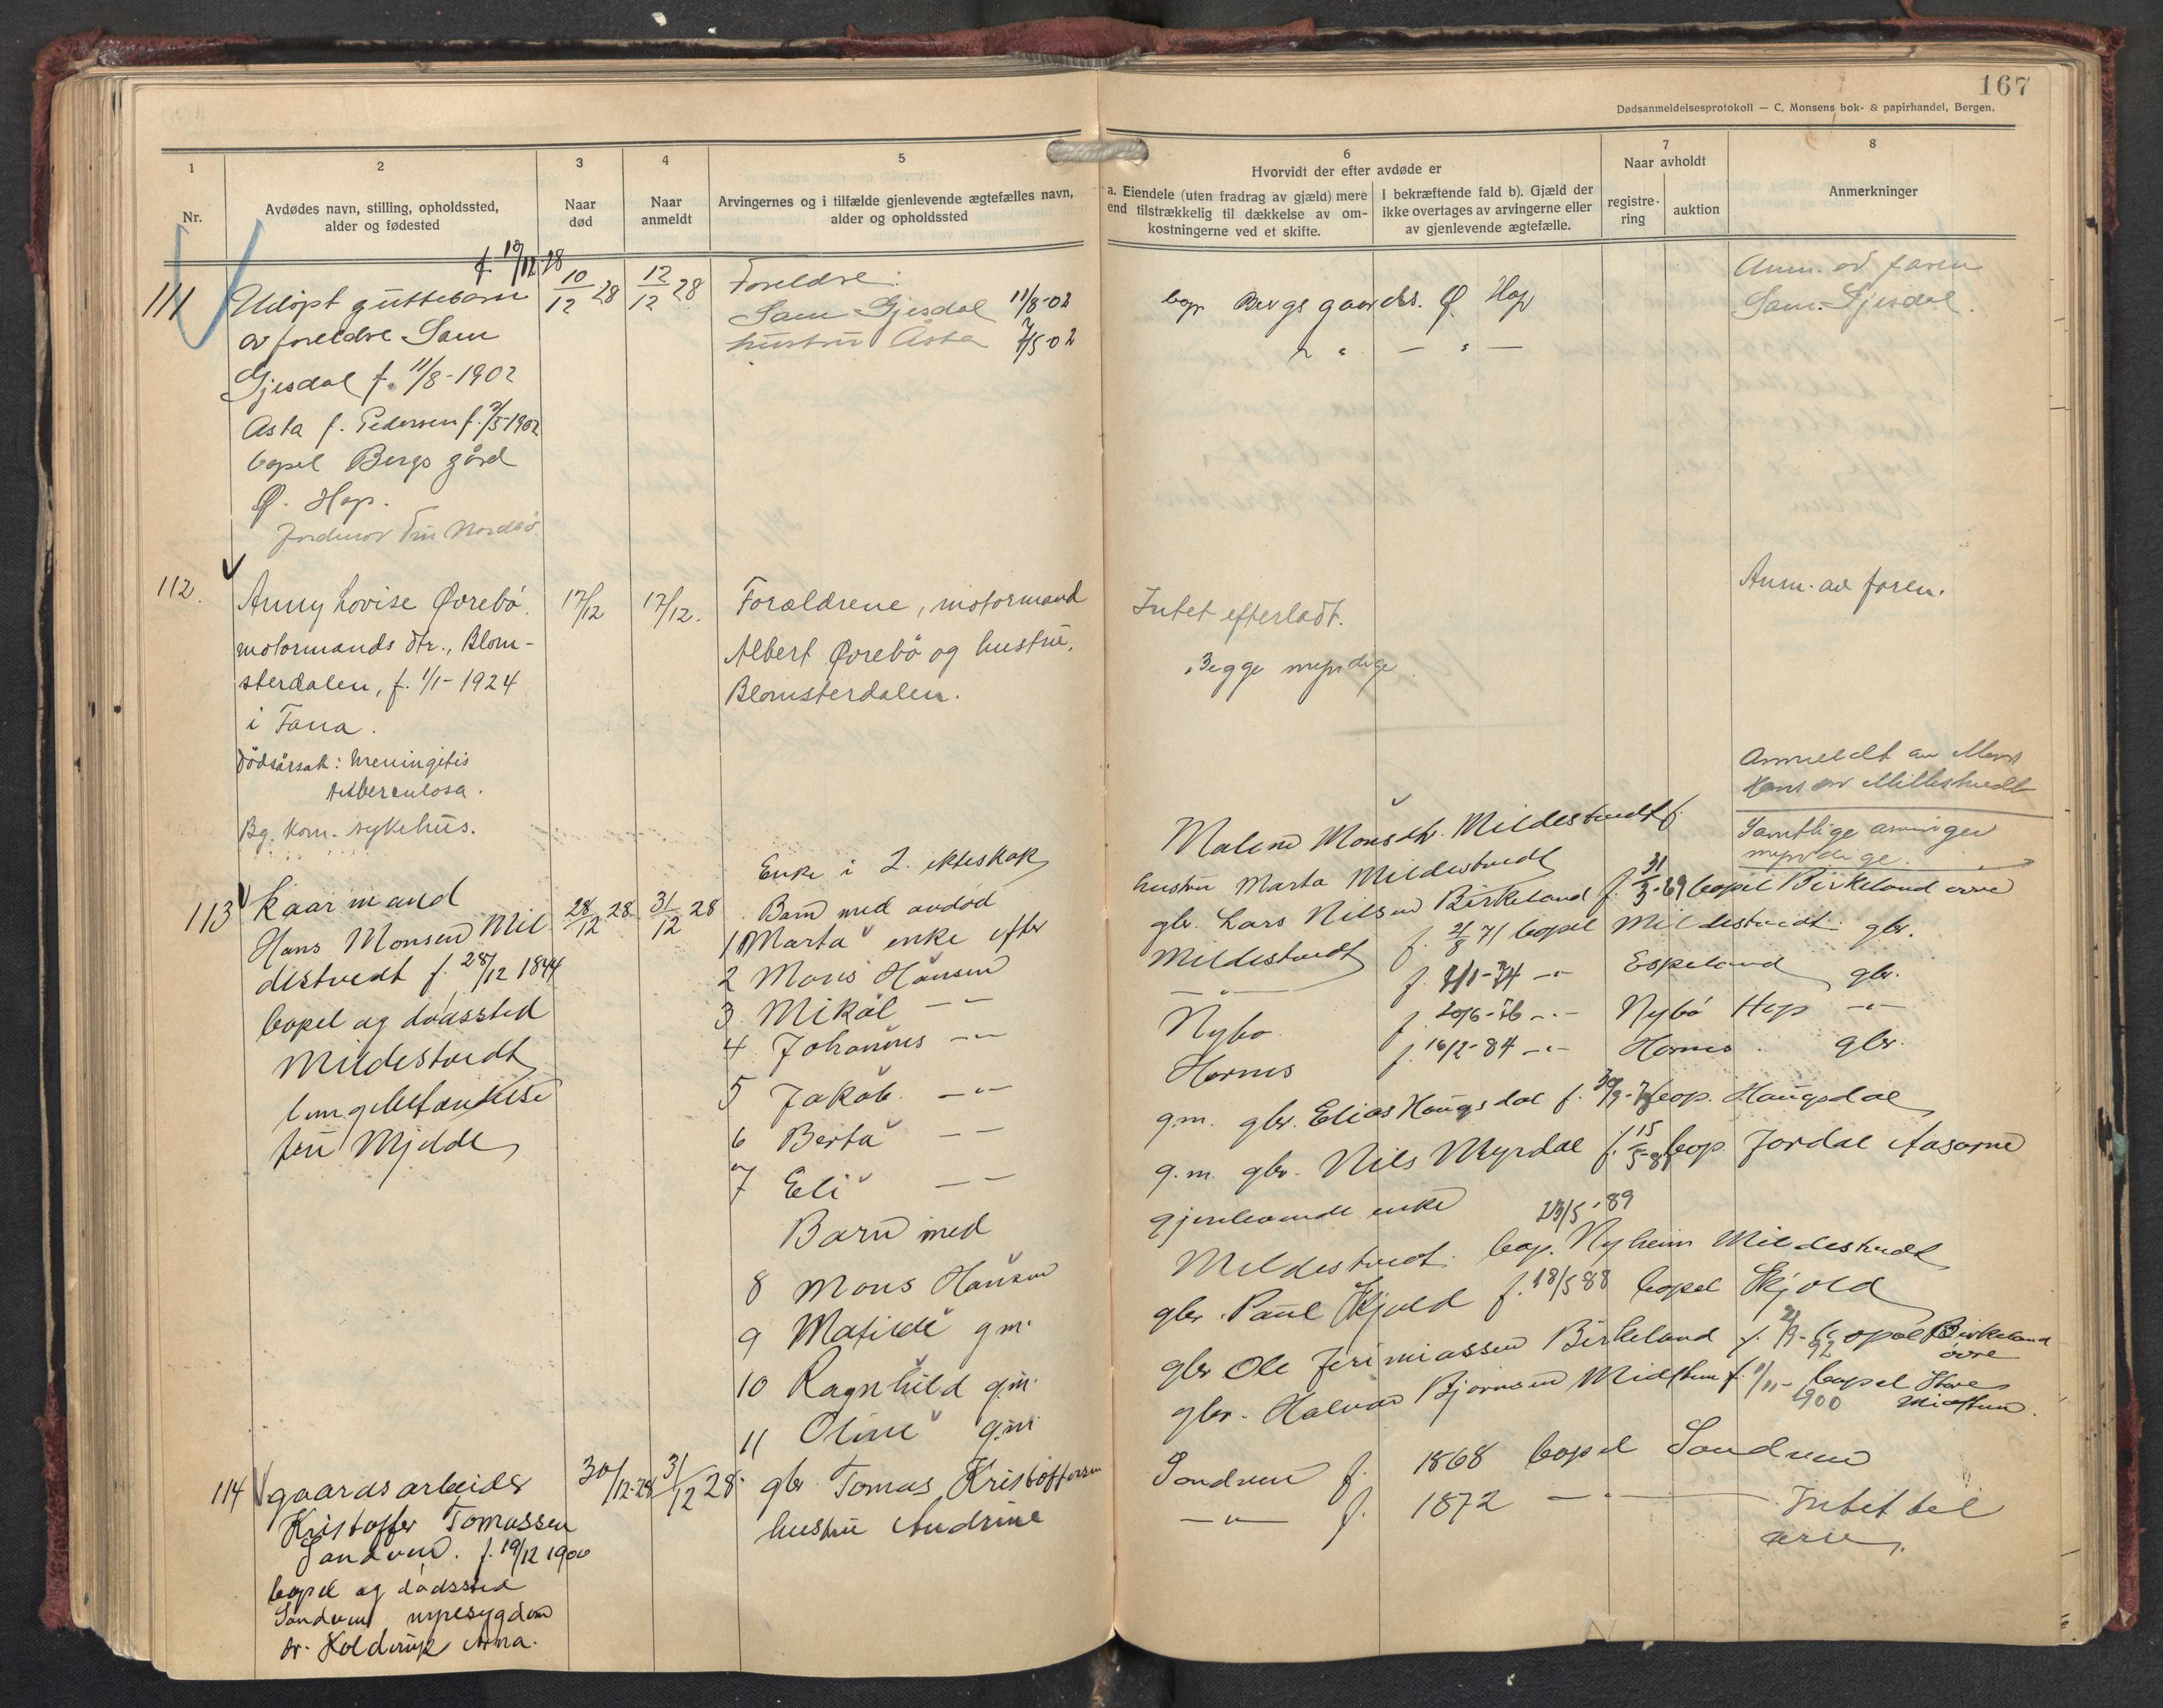 167
Dødsanmeldelsesprotokoll — C. Monsens bok- & papirhandel, Bergen.
1
2
3
4
5
6
7
8
Nr.
Avdødes navn, stilling, opholdssted,
alder og fødested
Naar
død
Naar
anmeldt
Arvingernes og i tilfælde gjenlevende ægtefælles navn,
alder og opholdssted
Hvorvidt der efter avdøde er
a. Eiendele (uten fradrag av gjæld) mere
end tilstrækkelig til dækkelse av om-
kostningerne ved et skifte.
I bekræftende fald b). Gjæld der
ikke overtages av arvingerne eller
av gjenlevende ægtefælle.
Naar avholdt
registre-
ring
auktion
Anmerkninger
111
f. 10/12 28
Udöpt guttebarn
av foreldre Sam
Gjesdal f. 11/8-1902
Asta f. Pedersen f. 7/5-1902
bopel Bergs gård
Ø. Hop.
Jordmor Fru Nordbö
10/12 28
12/12 28
Foreldre:
Sam Gjesdal 11/8-02
hustru Asta 7/5-02
bop Bergs gaards. Ø. Hop
" " — " —
Anm. av faren
Sam. Gjesdal.
112.
Anny Lovise Øvrebö.
motormands dtr., Blom-
sterdalen, f. 1/1-1924
i Fana.
Dödsårsak: Meningitis
tuberculosa.
Bg. kom. sykehus.
17/12
17/12.
Forældrene, motormand
Albert Øvrebö og hustru,
Blomsterdalen.
Intet efterladt.
Begge myndige.
Anm. av faren.
113
Kaarmand
Hans Monsen Mil
destvedt f. 28/12 1844
bopel og dödssted
Mildestvedt
lungebetændelse
fru Mjelde
28/12 28
31/12 28
Enke i 2. ekteskap
Barn med avdöd
1 Marta enke efter
2 Mons Hansen
3 Mikal — " —
4 Johannes — " —
5 Jakob — " —
6 Berta — —
7 Eli — —
Barn med
8 Mons Hansen
9 Matilde g.m.
10 Ragnhild g.m.
11 Oline g.m.
Malene Monsdtr. Mildestvedt f.
hustru Marta Mildestvedt
gbr. Lars Nilsen Birkeland f. 31/3-69 bopel Birkeland övre
Mildestvedt f. 21/8 71 bopel Mildestvedt gbr.
— " — f. 9/1-74 — " — Espeland gbr.
Nybö f. 20/6-76 — " — Nybö Hop — " —
Hornes f. 16/2-84 — " — Hornes gbr.
g.m. gbr. Elias Haugsdal f. bop. Haugsdal
g.m. gbr. Nils Myrdal f. 15/5 bop. Jordal Aasarne
gjenlevende enke
23/5-89
Mildestvedt. bop. Nyheim Mildestvedt
gbr. Paul Skjold f. 18/5 88 bopel Skjold
gbr Ole Jerimiassen Birkeland f. bopel Birkeland
92 övre
gbr. Halvor Björnsen Midttun f. 11/11- bopel Midttun
1900
Anmeldt av Mons
Hansen Mildestvedt
Samtlige arvinger
myndige.
114
gaardsarbeider
Kristoffer Tomassen
Sandven. f. 19/12 1900
bopel og dödssted
Sandven nyresygdom
dr. Holdrup Arna.
30/12-28
31/12 28
gbr. Tomas Kristoffersen
hustru Andrine
Sandven f. 1868 bopel Sandven
— " — f. 1872 — " —
Intet til
arv.